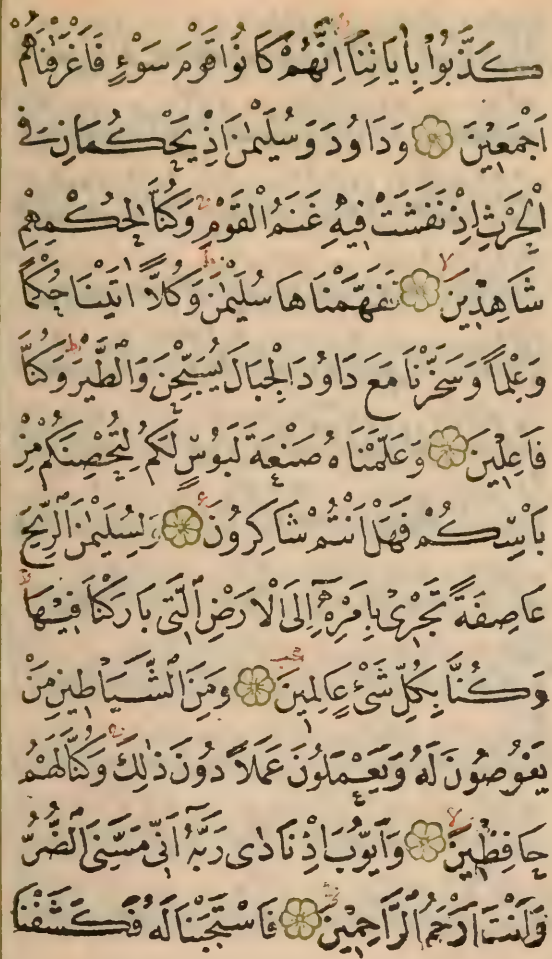 كَذَّبُوا بِاٰيَاتِنَا اِنَّهُمْ كَانُوا قَوْمَ سَوْءٍ فَاَغْرَقْنَاهُمْ
اَجْمَعِينَ وَدَاوُدَ وَسُلَيْمٰنَ اِذْ يَحْكُمَانِ فِى
الْحَرْثِ اِذْ نَفَشَتْ فِيهِ غَنَمُ الْقَوْمِ وَكُنَّا لِحُكْمِهِمْ
شَاهِدِينَ فَفَهَّمْنَاهَا سُلَيْمٰنَ وَكُلًّا اٰتَيْنَا حُكْمًا
وَعِلْمًا وَسَخَّرْنَا مَعَ دَاوُدَ الْجِبَالَ يُسَبِّحْنَ وَالطَّيْرَ وَكُنَّا
فَاعِلِينَ وَعَلَّمْنَاهُ صَنْعَةَ لَبُوسٍ لَكُمْ لِتُحْصِنَكُمْ مِنْ
بَاْسِكُمْ فَهَلْ اَنْتُمْ شَاكِرُونَ وَلِسُلَيْمٰنَ الرِّيحَ
عَاصِفَةً تَجْرِى بِاَمْرِهِ اِلَى الْاَرْضِ الَّتِى بَارَكْنَا فِيهَا
وَكُنَّا بِكُلِّ شَىْءٍ عَالِمِينَ وَمِنَ الشَّيَاطِينِ مَنْ
يَغُوصُونَ لَهُ وَيَعْمَلُونَ عَمَلًا دُونَ ذٰلِكَ وَكُنَّا لَهُمْ
حَافِظِينَ وَاَيُّوبَ اِذْ نَادٰى رَبَّهُ اَنِّى مَسَّنِىَ الضُّرُّ
وَاَنْتَ اَرْحَمُ الرَّاحِمِينَ فَاسْتَجَبْنَا لَهُ فَكَشَفْنَا